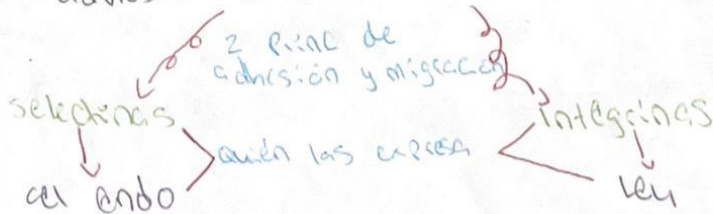 2 princ de
adhesión y migración
selectinas
integrinas
quién las expresa
cel endo
leu